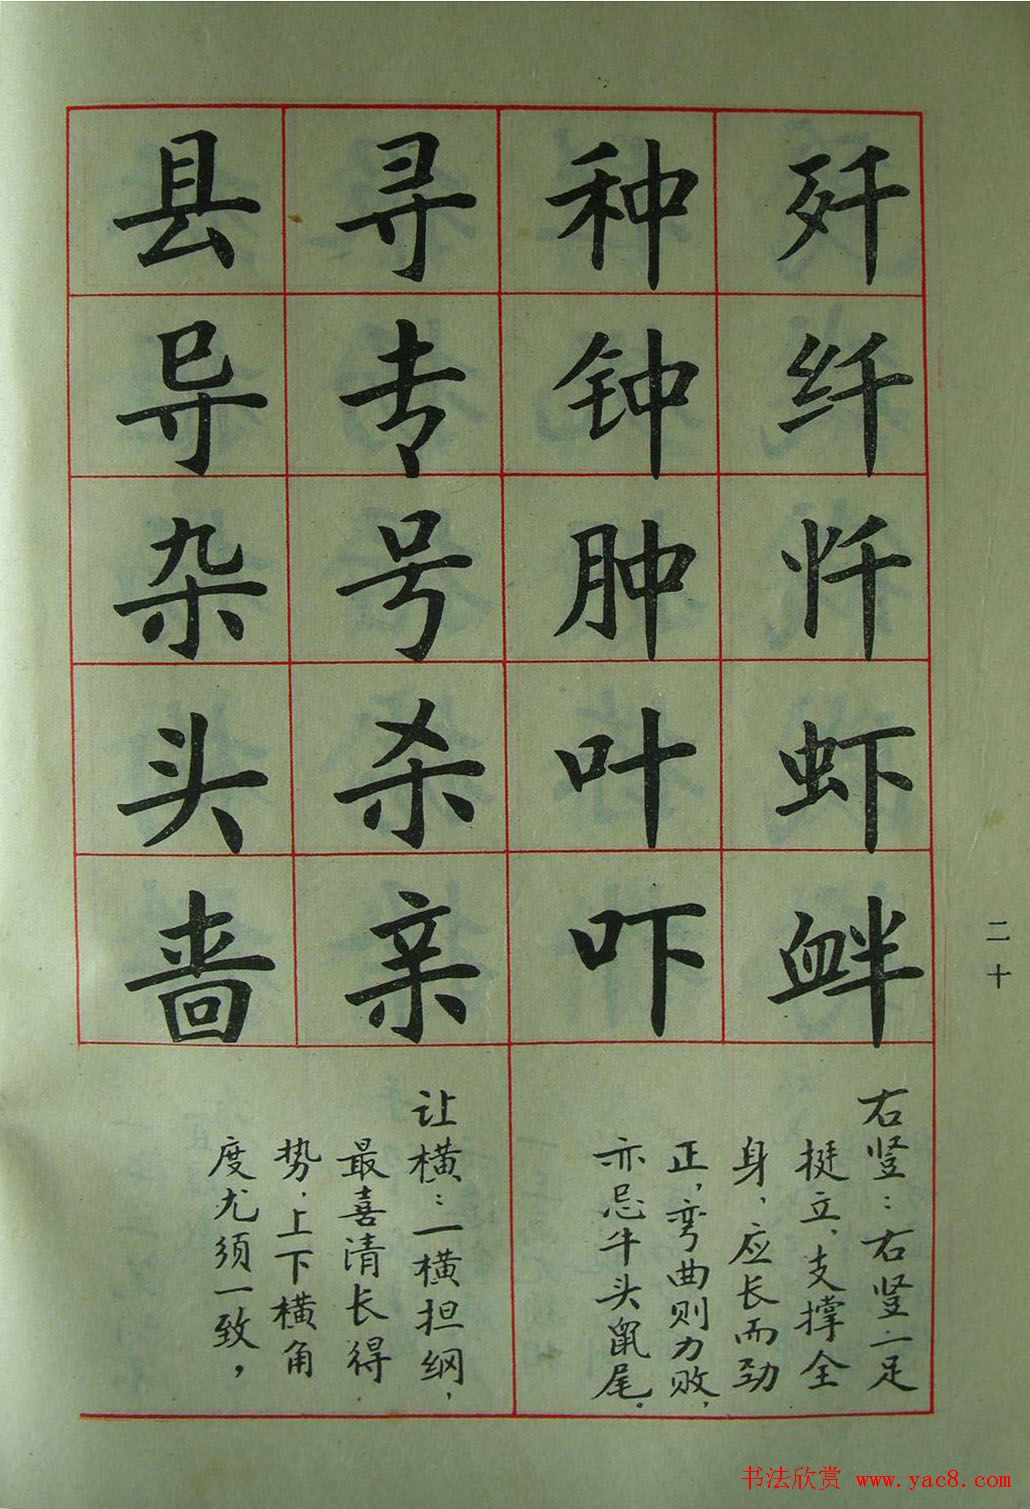 歼纤忏虾衅
种钟肿叶吓
右竖：右竖一足
挺立，支撑全
身，应长而劲
正，弯曲则力败，
亦忌牛头鼠尾。
寻专号杀亲
县导杂头啬
让横：一横担纲，
最喜清长得
势，上下横角
度尤须一致，
二十
书法欣赏 www.yac8.com